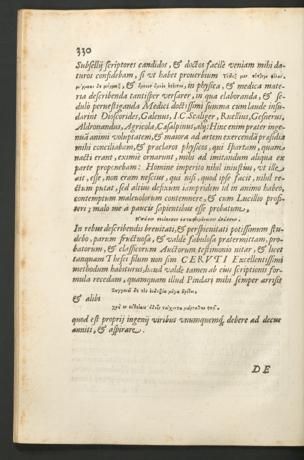 330
Subsellij scriptores candidos, & doctos facilè veniam mihi da-
turos confidebam, si vt habet prouerbium
in physica, & medica mate-
ria describenda tantisper versarer, in qua elaboranda, & se-
dulò peruestiganda Medici doctissimi summa cum laude insu-
darunt Dioscorides, Galenus, I. C. Scaliger, Ruellius, Gesnerus,
Aldrouandus, Agricola, Cæsalpinus, alij: Hinc enim præter inge-
nuã animi voluptatem, & maiora ad artem exercendã præsidia
mihi conciliabam, & præclaros physicos, qui spartam, quam
nacti erant, eximiè ornarunt, mihi ad imitandum aliqua ex
parte proponebam: Homine imperito nihil iniustius, vt ille
ait, esse, non eram nescius, qui nisi, quod ipse facit, nihil re-
ctum putat, sed altius defixum iampridem id in animo habeo,
contemptum maleuolorum contemnere, & cum Lucillio profi-
teri; malo me à paucis sapientibus esse probatum,
In rebus describendis breuitati, & perspicuitati potissimum stu-
debo, parum fructuosa, & valde fabulosa prætermittam, pro-
batorum, & classicorum Auctorum testimonio nitar, & licet
tanquam Thesei filum non sim CERVTI Excellentissimi
methodum habiturus, haud valde tamen ab eius scriptionis for-
mula recedam, quamquam illud Pindari mihi semper arrisit
& alibi
quod est proprij ingenij viribus vnumquemq; debere ad decus
anniti, & aspirare.
DE